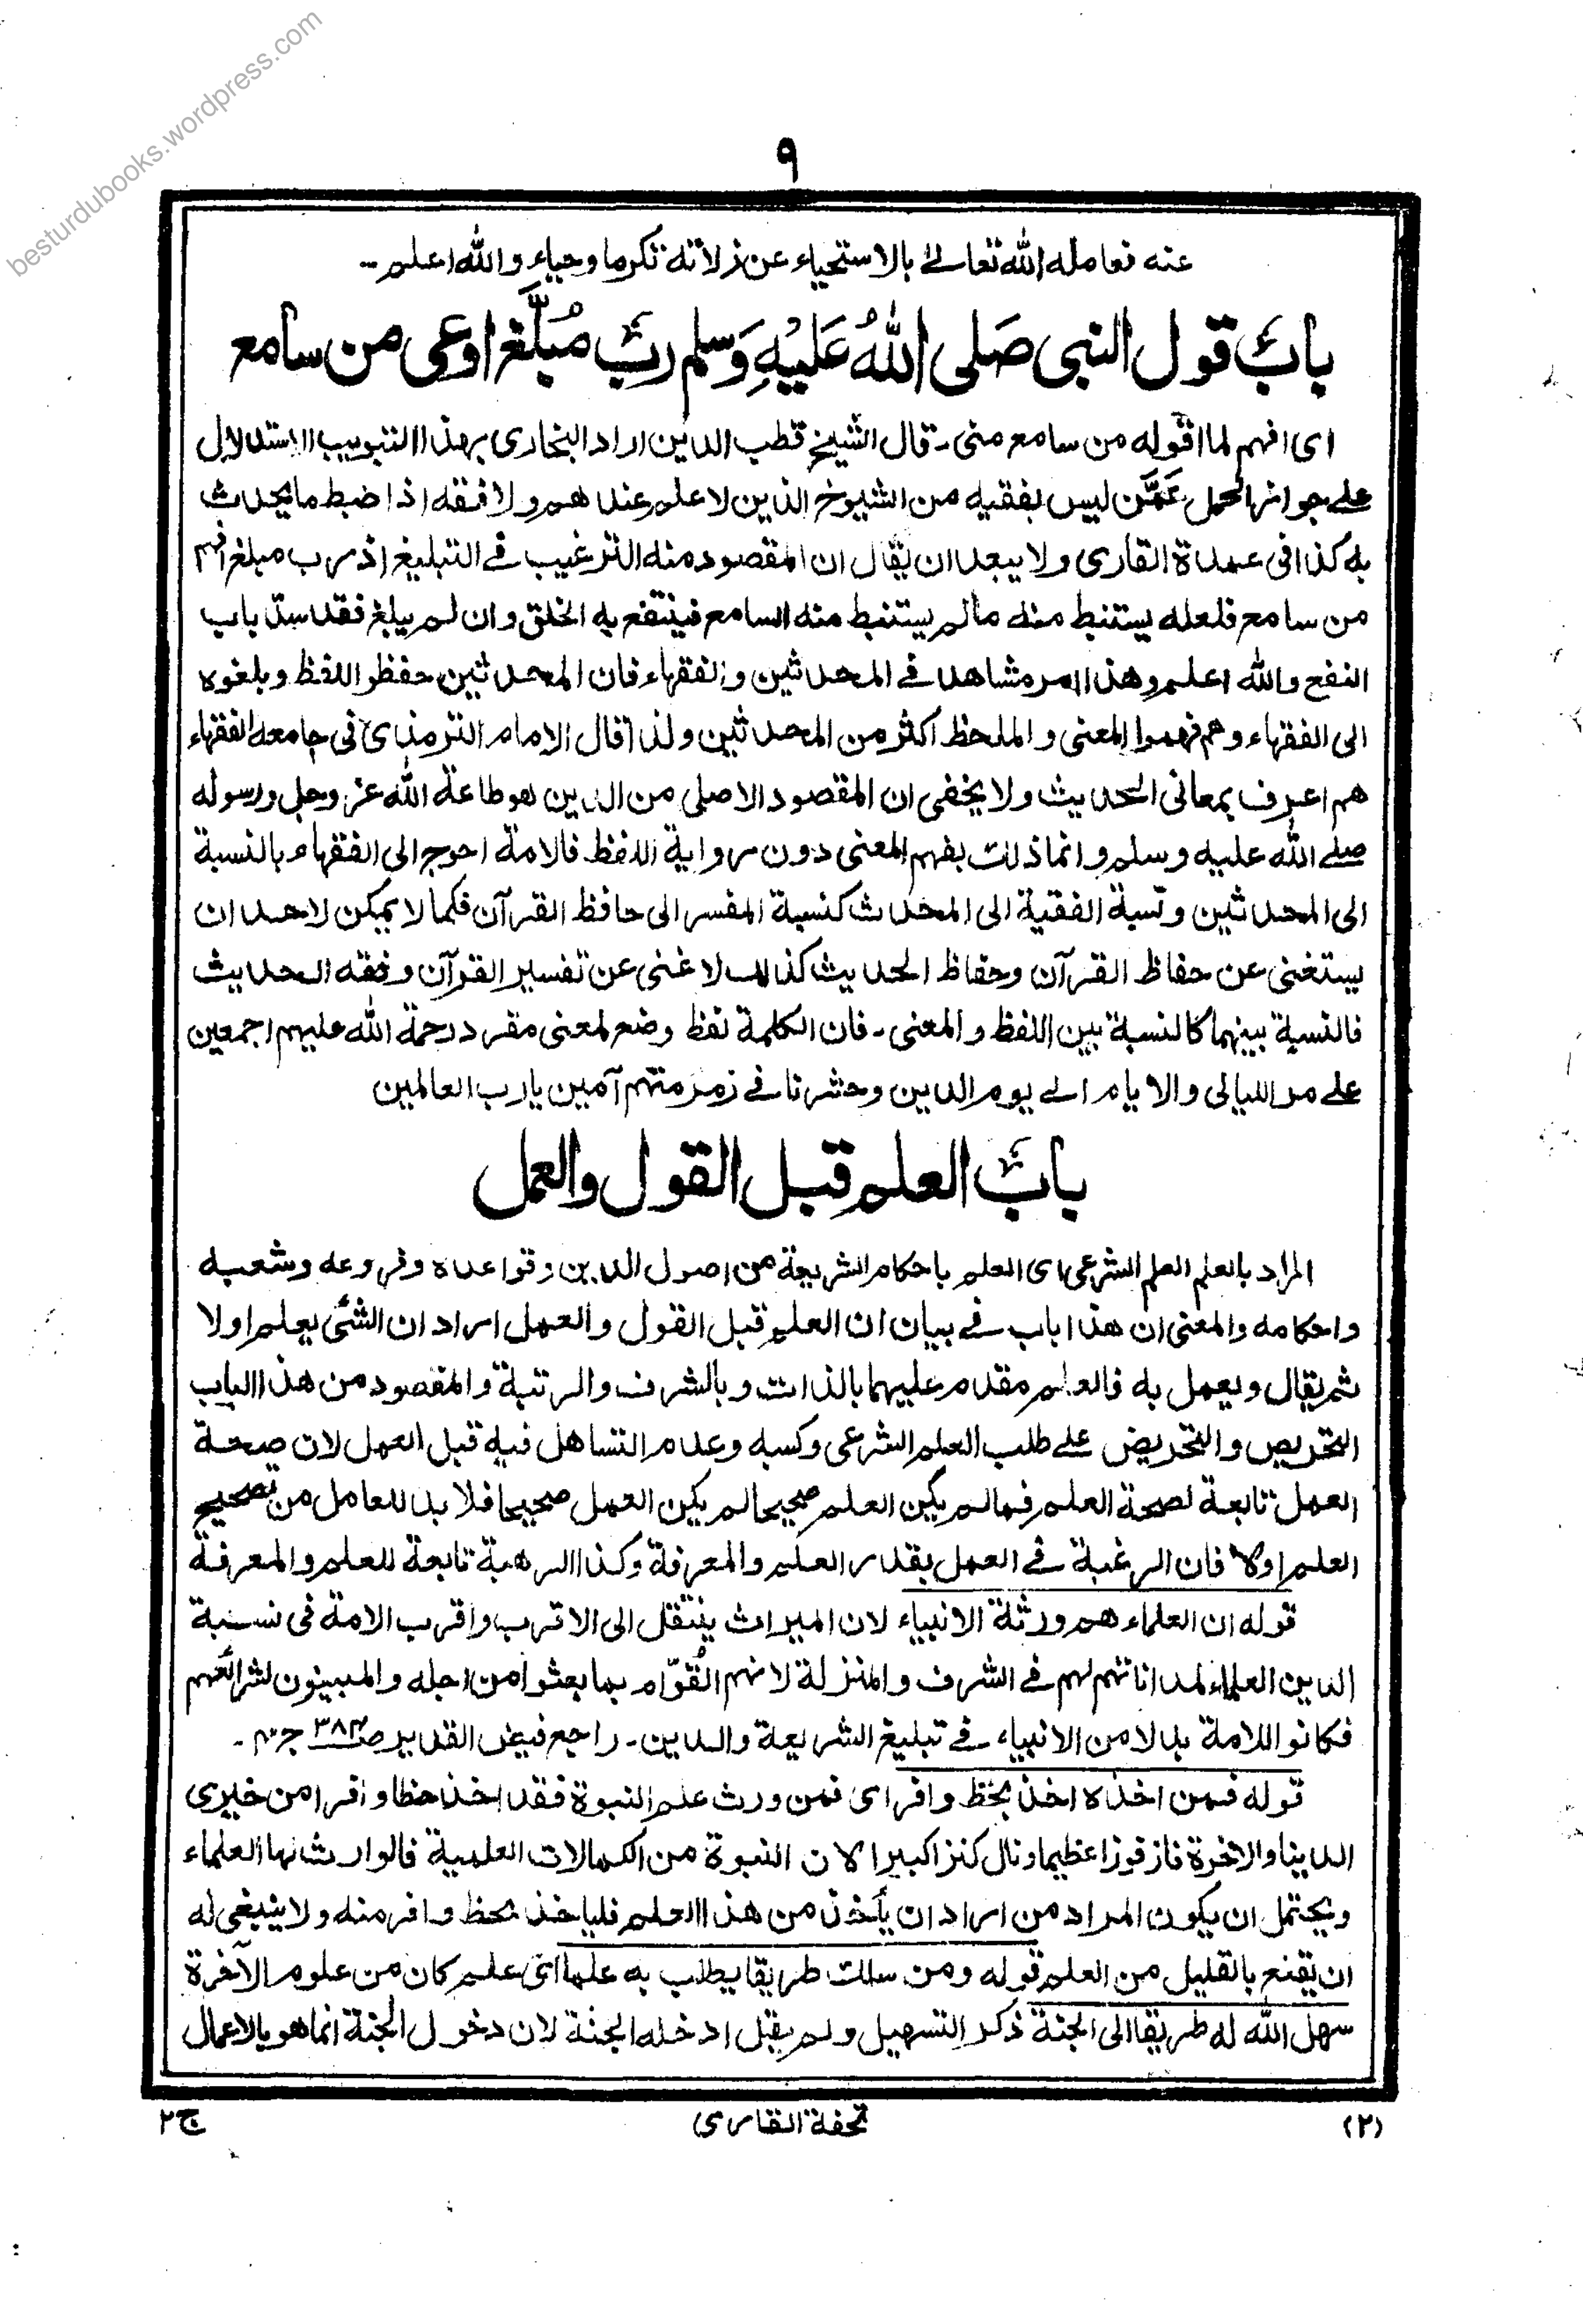 besturdubooks.wordpress.com
٩
عنه فعامله الله تعالے بالاستحياء عن زلاته تكرما وحياء والله اعلم --
بابٌ قول النبى صَلى اللهُ عَلَيْهِ وَسلم ربّ مُبلَّغ اوعى من سامع
اى افهم لما اقوله من سامع منى - قال الشيخ قطب الدين اراد البخارى بهذا التبويب الاستدلال
علے جواز الحمل عَمَّن ليس بفقيه من الشيوخ الذين لا علم عندهم ولا فقه اذا ضبط ما يحدث
به كذا فى عمدة القارى ولا يبعد ان يقال ان المقصود منه الترغيب فے التبليغ اذ رب مبلغ افهم
من سامع فلعله يستنبط منه مالم يستنبط منه السامع فينتفع به الخلق وان لم يبلغ فقد سدّ باب
النفع والله اعلم وهذا امر مشاهد فے المحدثين والفقهاء فان المحدثين حفظوا اللفظ وبلغوه
الى الفقهاء وهم فهموا المعنى والملحظ اكثر من المحدثين ولذا قال الامام الترمذىؒ فى جامعه الفقهاء
هم اعرف بمعانى الحديث ولا يخفى ان المقصود الاصلى من الدين هو طاعة الله عز وجل ورسوله
صلے الله عليه وسلم وانما ذلك بفهم المعنى دون رواية اللفظ فالامة احوج الى الفقهاء بالنسبة
الى المحدثين ونسبة الفقيه الى المحدث كنسبة المفسر الى حافظ القرآن فكما لا يمكن لاحد ان
يستغنى عن حفاظ القرآن وحفاظ الحديث كذالك لا غنى عن تفسير القرآن وفقه الحديث
فالنسبة بينهما كالنسبة بين اللفظ والمعنى - فان الكلمة لفظ وضع لمعنى مفرد رحمة الله عليهم اجمعين
علے مر الليالى والايام الے يوم الدين وحشرنا فے زمرمتهم آمين يارب العالمين
بابٌ العلم قبل القول والعمل
المراد بالعلم العلم الشرعى اى العلم باحكام الشريعة من اصول الدين وقواعده وفروعه وشعبه
واحكامه والمعنى ان هذا باب فے بيان ان العلم قبل القول والعمل اراد ان الشئ يعلم اولا
ثم يقال ويعمل به فالعلم مقدم عليهما بالذات وبالشرف والمرتبة والمقصود من هذا الباب
التحريص والتحريض علے طلب العلم الشرعى وكسبه وعدم التساهل فيه قبل العمل لان صحة
العمل تابعة لصحة العلم فمالم يكن العلم صحيحا لم يكن العمل صحيحا فلا بد للعامل من تصحيح
العلم اولا فان الرغبة فے العمل بقدر العلم والمعرفة وكذا الرهبة تابعة للعلم والمعرفة
قوله ان العلماء هم ورثة الانبياء لان الميراث ينتقل الى الاقرب واقرب الامة فى نسبة
الدين العلماء لمداناتهم لهم فے الشرف والمنزلة لانهم القُوّام بما بعثوا من اجله والمبينون لشرائعهم
فكانوا للامة بدلا من الانبياء فے تبليغ الشريعة والدين - راجع فيض القدير صـ٣٨٣ جـ٤ -
قوله فمن اخذه اخذ بحظ وافر اى فمن ورث علم النبوة فقد اخذ حظا وافرا من خيرى
الدينا والاخرة فاز فوزا عظيما ونال كنزا كبيرا لان النبوة من الكمالات العلمية فالوارث لها العلماء
ويحتمل ان يكون المراد من اراد ان يأخذ من هذا العلم فلياخذ بحظ وافر منه ولا ينبغى له
ان يقنع بالقليل من العلم قوله ومن سلك طريقا يطلب به علما اى علم كان من علوم الآخرة
سهل الله له طريقا الى الجنة ذكر التسهيل ولم يقل ادخله الجنة لان دخول الجنة انما هو بالاعمال
(٢) تحفة القارى ج٢